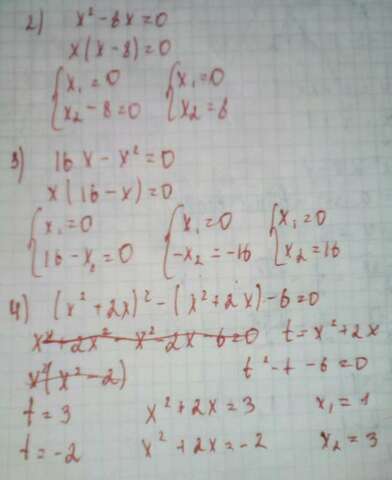 2) x² - 8x = 0
x(x - 8) = 0
{ x₁ = 0 { x₁ = 0
{ x₂ - 8 = 0 { x₂ = 8
3) 16x - x² = 0
x(16 - x) = 0
{ x₁ = 0 { x₁ = 0 { x₁ = 0
{ 16 - x₂ = 0 { -x₂ = -16 { x₂ = 16
4) (x² + 2x)² - (x² + 2x) - 6 = 0
x⁴ + 2x² - x² - 2x - 6 = 0 t = x² + 2x
x²(x² - 2) t² - t - 6 = 0
t = 3 x² + 2x = 3 x₁ = 1
t = -2 x² + 2x = -2 x₂ = 3